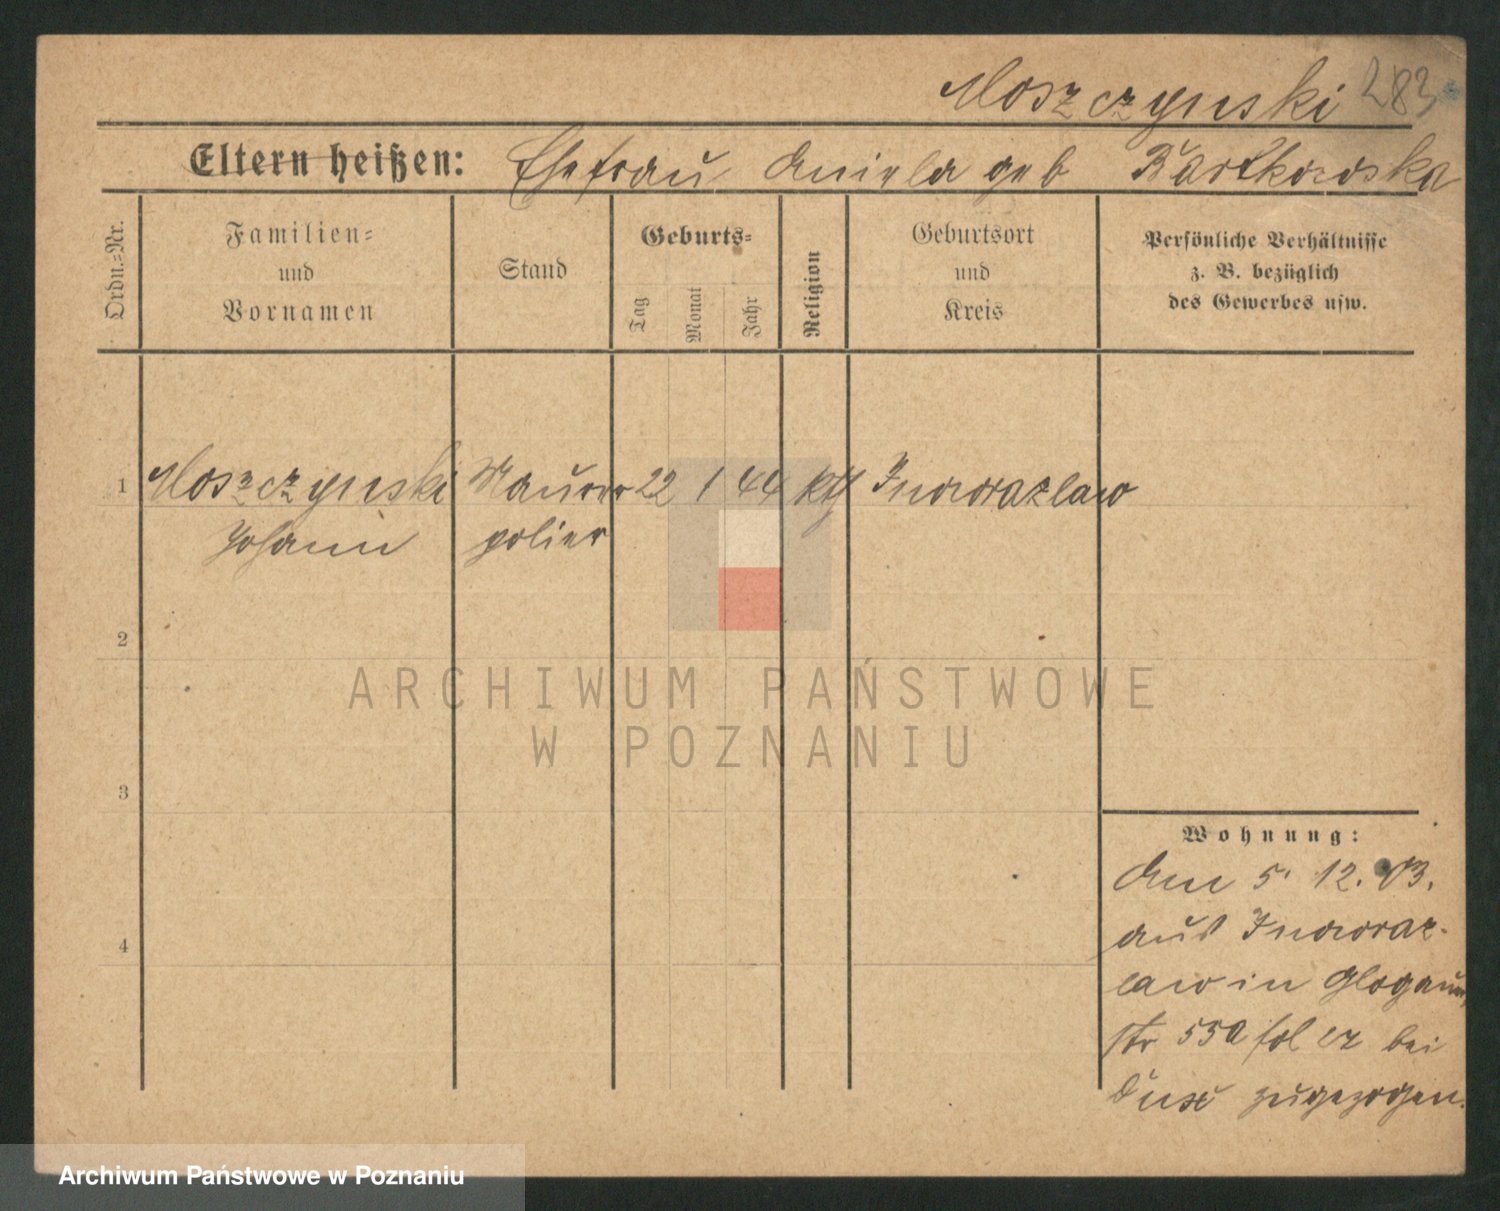 Moszczynski 283
Eltern heißen: Ehefrau Aniela geb Bartkowska
Ordn.-Nr.
Familien-
und
Vornamen
Stand
Geburts-
Tag
Monat
Jahr
Religion
Geburtsort
und
Kreis
Persönliche Verhältnisse
z. B. bezüglich
des Gewerbes usw.
1 Moszczynski Maurer 22 1 44 kth Inowrazlaw
Johann polier
2
3
4
ARCHIWUM PAŃSTWOWE
W POZNANIU
Wohnung:
Am 5. 12. 03.
aus Inowraz-
law in Glogauer
str 55a bei
zugezogen.
Archiwum Państwowe w Poznaniu